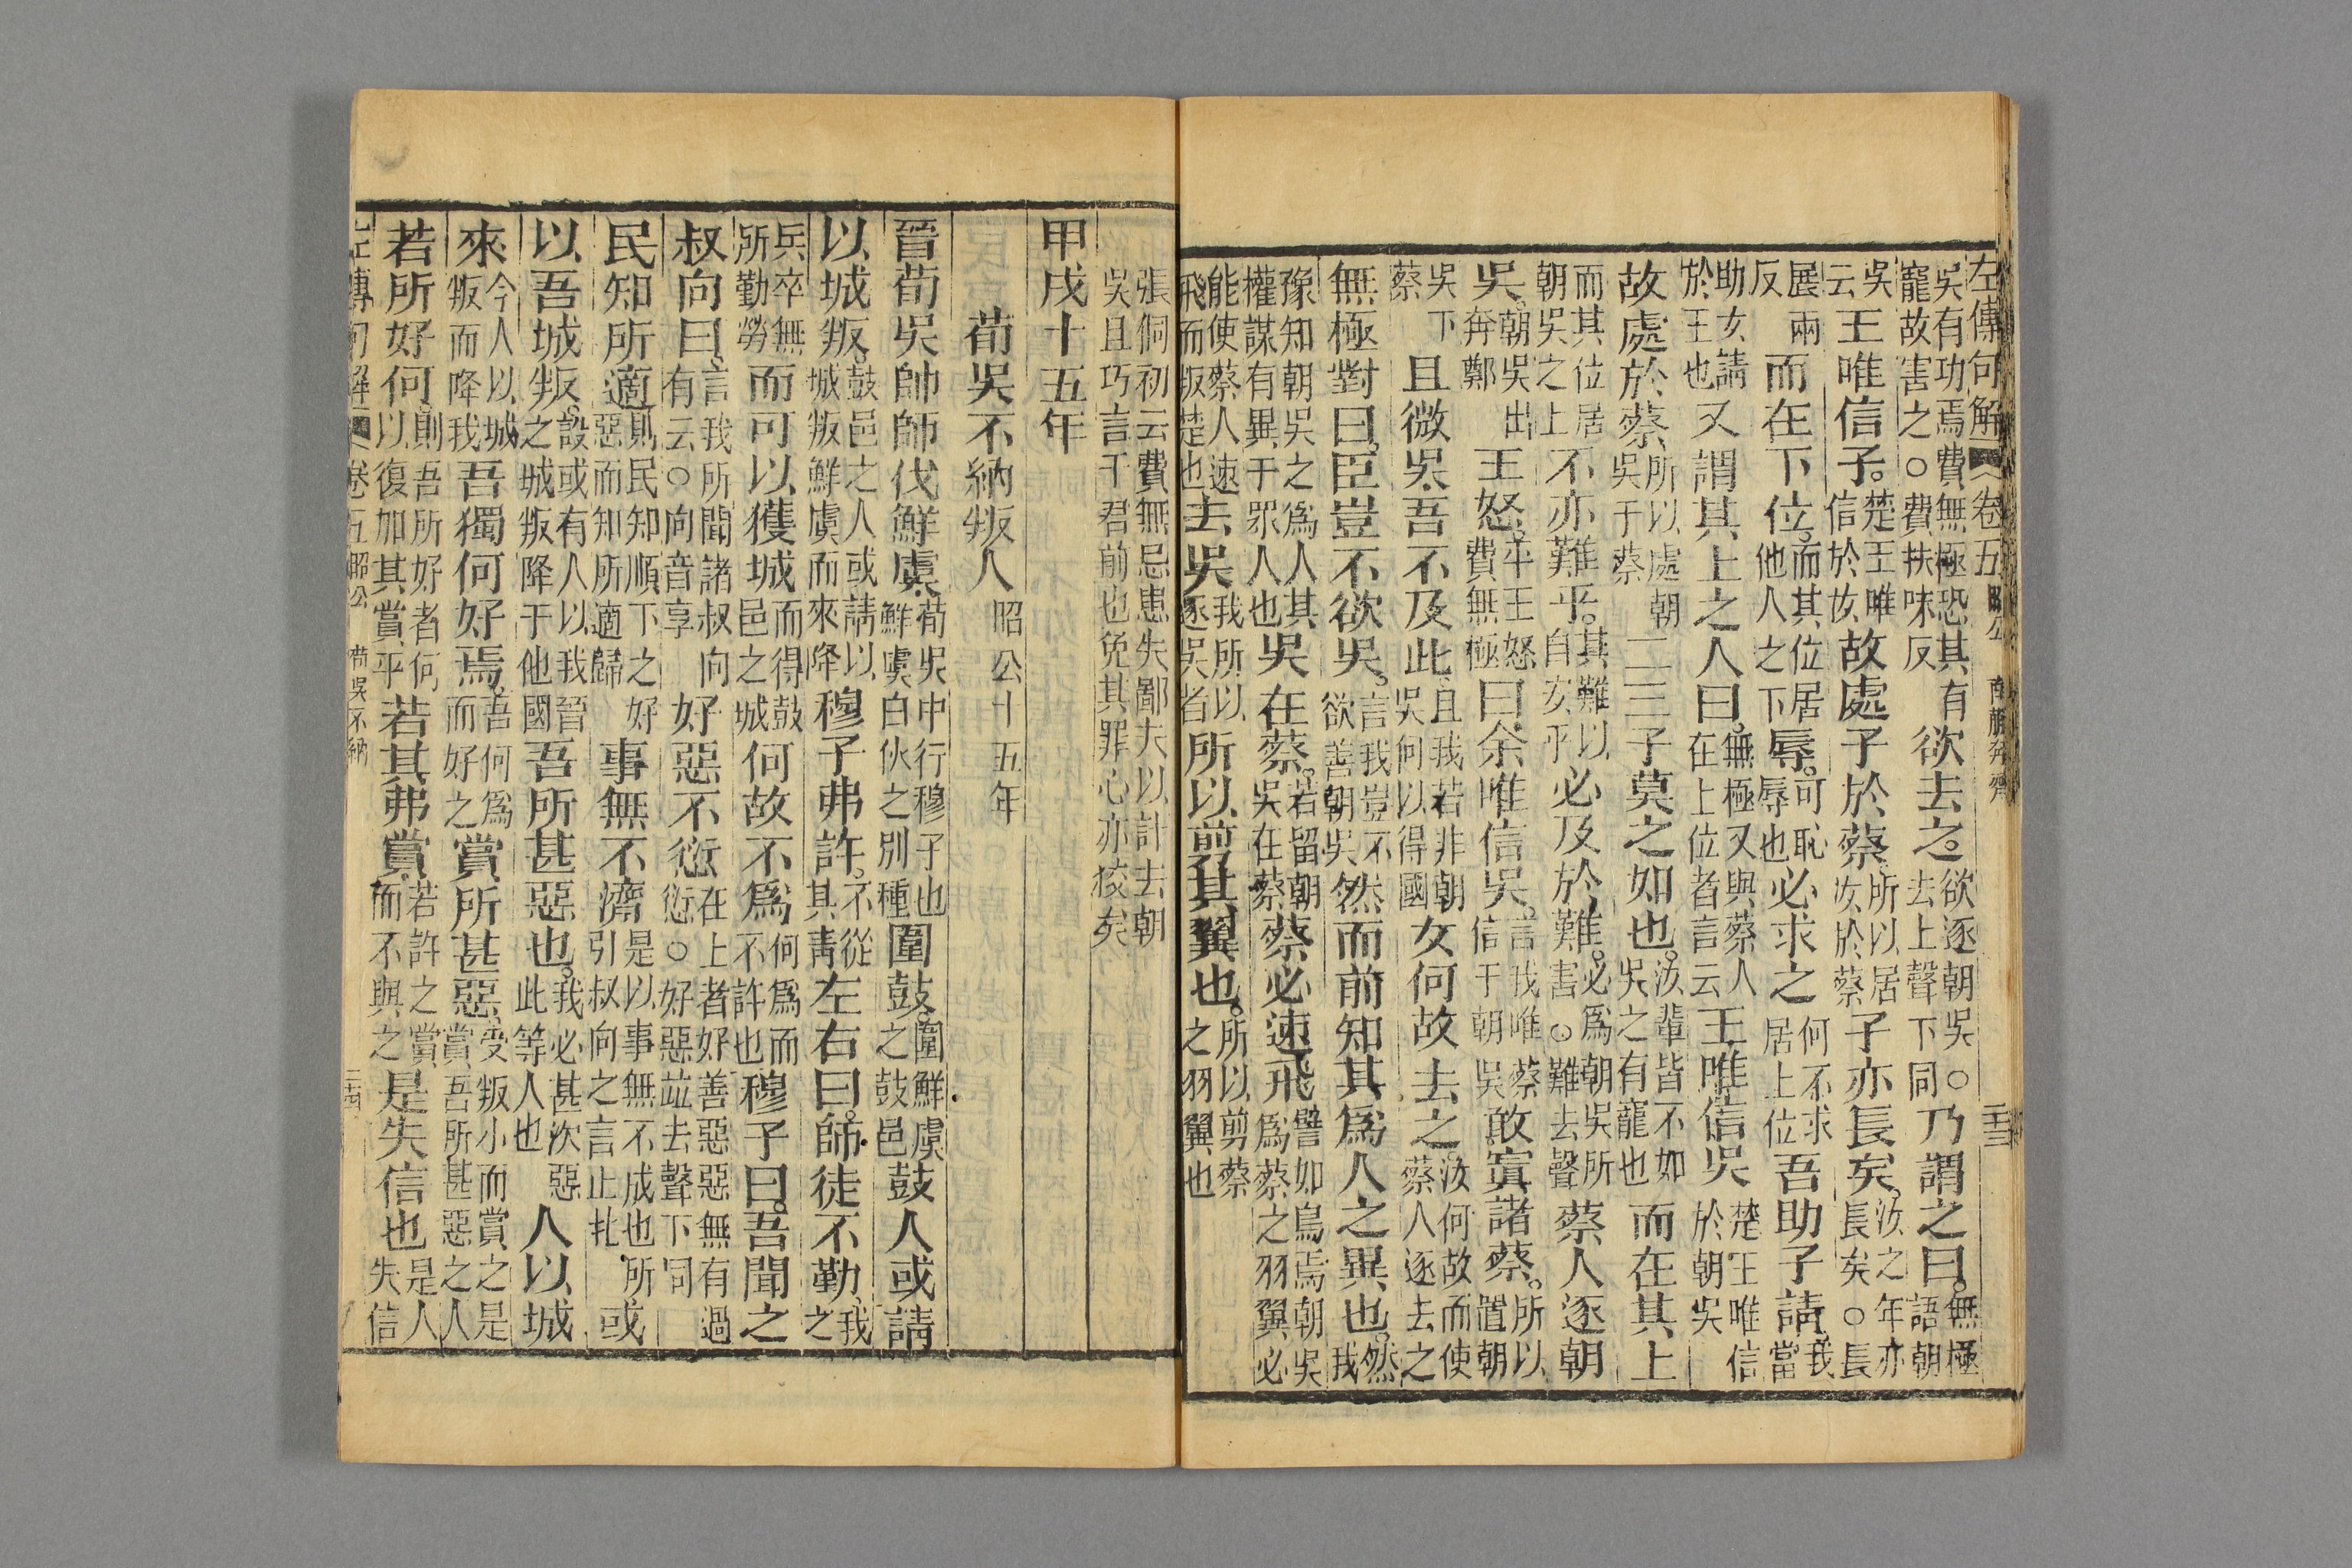 左傳句解 卷五 昭公 南蒯奔齊 二十三
吳有功焉費無極恐其有寵故害之○費扶味反欲去之。欲逐朝吳○去上聲下同乃謂之曰。無極語朝
吳云王唯信子。楚王唯信於汝故處子於蔡。所以居汝於蔡子亦長矣。汝之年亦長矣○長
展兩反而在下位。而其位居他人之下辱。可恥辱也必求之何不求居上位吾助子請。我當
助女請於王也又謂其上之人曰。無極又與蔡人在上位者言云王唯信吳楚王唯信於朝吳
故處於蔡所以處朝吳于蔡二三子莫之如也。汝輩皆不如吳之有寵也而在其上
而其位居朝吳之上不亦難乎。其難以自安乎必及於難。必爲朝吳所難害○難去聲蔡人逐朝
吳。朝吳出奔鄭王怒。平王怒費無極曰余唯信吳。言我唯蔡信于朝吳敢寘諸蔡。所以置朝
吳下蔡且微吳吾不及此。且我若非朝吳何以得國女何故去之。汝何故而使蔡人逐去之
無極對曰。臣豈不欲吳。言我豈不欲善朝吳然而前知其爲人之異也。然我
豫知朝吳之爲人其權謀有異于眾人也吳在蔡。若留朝吳在蔡蔡必速飛譬如鳥焉朝吳爲蔡之羽翼必
能使蔡人速飛而叛楚也去吳我所以逐吳者所以翦其翼也。所以剪蔡之羽翼也
張侗初云費無忌患失鄙夫以計去朝吳且巧言于君前也免其罪心亦狡矣
甲戌十五年
荀吳不納叛人昭公十五年
晉荀吳帥師伐鮮虞荀吳中行穆子也鮮虞白狄之別種圍鼓。圍鮮虞之鼓邑鼓人或請
以城叛。鼓邑之人或請以城叛鮮虞而來降穆子弗許。不從其靑左右曰。師徒不勤我之
兵卒無所勤勞而可以獲城而得鼓邑之城何故不爲何爲而不許也穆子曰。吾聞之
叔向曰。言我所聞諸叔向有云○向音享好惡不愆在上者好善惡惡無有過愆○好惡並去聲下同
民知所適則民知順下之好惡而知所適歸事無不濟是以事無不成也所引叔向之言止此或
以吾城叛。設或有人以我晉之城叛降于他國吾所甚惡也。我必甚次惡此等人也人以城
來今人以城叛而降我吾獨何好焉。吾何爲而好之賞所甚惡受叛小而賞之是賞吾所甚惡之人
若所好何。則吾所好者何以復加其賞乎若其弗賞若許之賞而不與之是失信也是人失信
左傳句解 卷五 昭公 荀吳不納 二十四